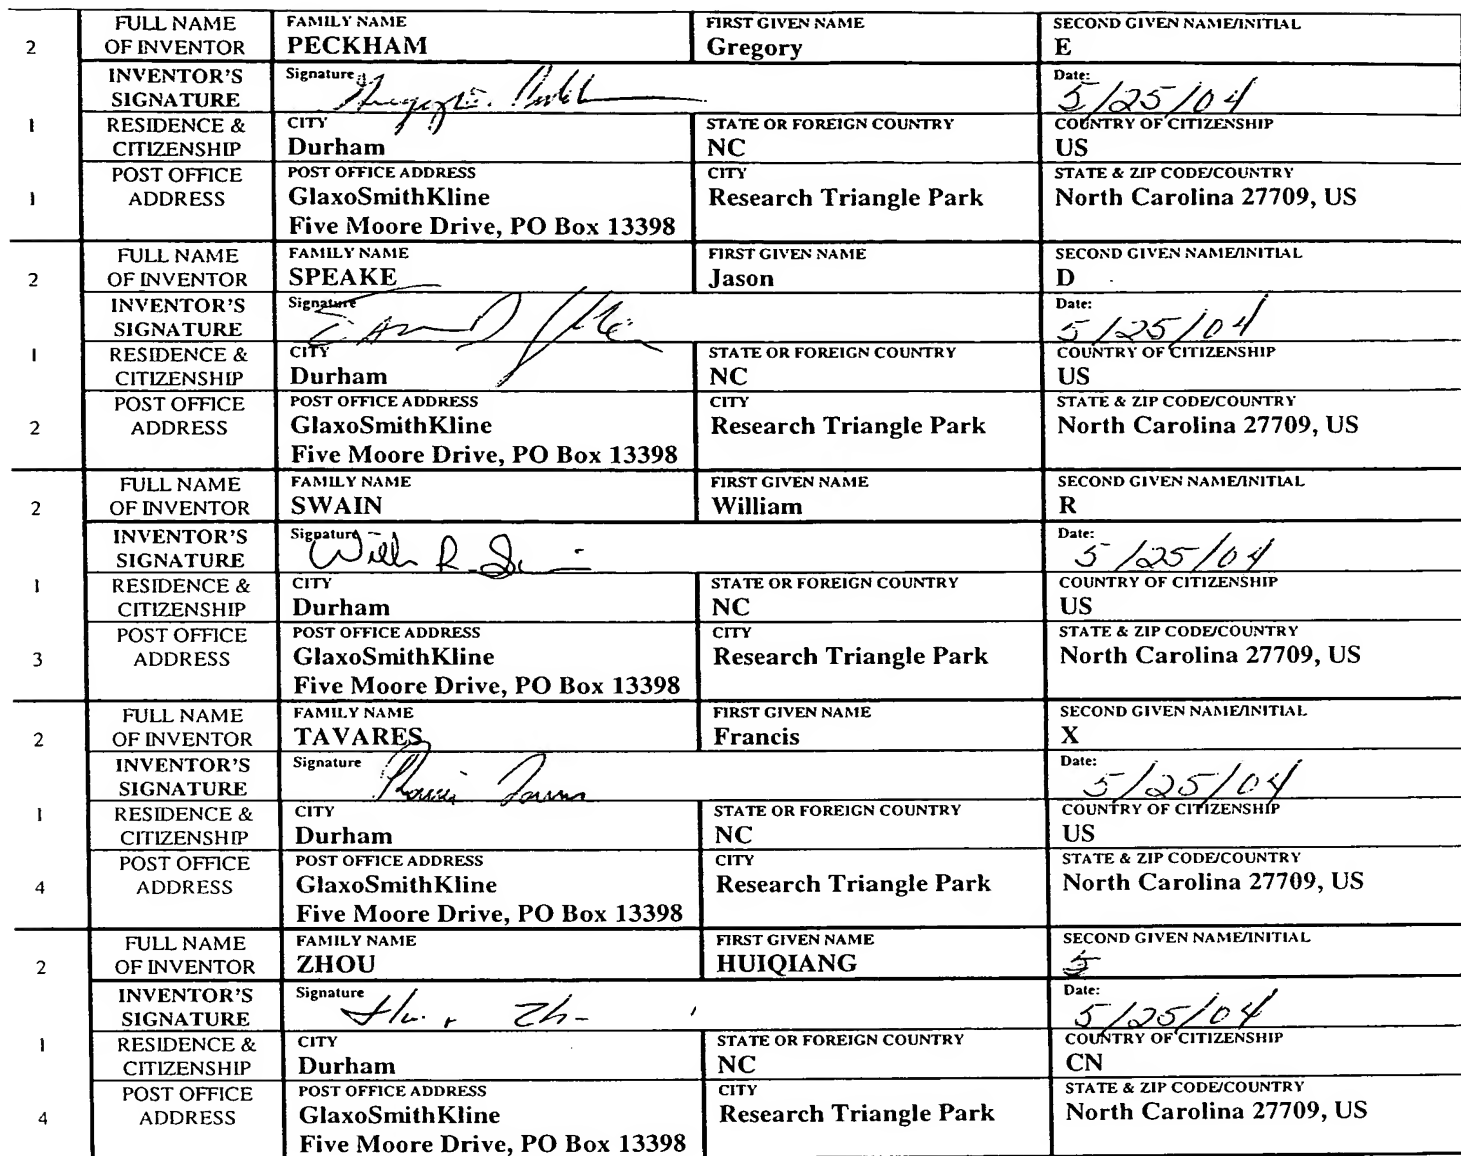 2 FULL NAME OF INVENTOR FAMILY NAME PECKHAM FIRST GIVEN NAME Gregory SECOND GIVEN NAME/INITIAL E
INVENTOR'S SIGNATURE Signature Date: 5/25/04
1 RESIDENCE & CITIZENSHIP CITY Durham STATE OR FOREIGN COUNTRY NC COUNTRY OF CITIZENSHIP US
1 POST OFFICE ADDRESS POST OFFICE ADDRESS GlaxoSmithKline CITY Research Triangle Park STATE & ZIP CODE/COUNTRY North Carolina 27709, US
Five Moore Drive, PO Box 13398
2 FULL NAME OF INVENTOR FAMILY NAME SPEAKE FIRST GIVEN NAME Jason SECOND GIVEN NAME/INITIAL D
INVENTOR'S SIGNATURE Signature Date: 5/25/04
1 RESIDENCE & CITIZENSHIP CITY Durham STATE OR FOREIGN COUNTRY NC COUNTRY OF CITIZENSHIP US
2 POST OFFICE ADDRESS POST OFFICE ADDRESS GlaxoSmithKline CITY Research Triangle Park STATE & ZIP CODE/COUNTRY North Carolina 27709, US
Five Moore Drive, PO Box 13398
2 FULL NAME OF INVENTOR FAMILY NAME SWAIN FIRST GIVEN NAME William SECOND GIVEN NAME/INITIAL R
INVENTOR'S SIGNATURE Signature Date: 5/25/04
1 RESIDENCE & CITIZENSHIP CITY Durham STATE OR FOREIGN COUNTRY NC COUNTRY OF CITIZENSHIP US
3 POST OFFICE ADDRESS POST OFFICE ADDRESS GlaxoSmithKline CITY Research Triangle Park STATE & ZIP CODE/COUNTRY North Carolina 27709, US
Five Moore Drive, PO Box 13398
2 FULL NAME OF INVENTOR FAMILY NAME TAVARES FIRST GIVEN NAME Francis SECOND GIVEN NAME/INITIAL X
INVENTOR'S SIGNATURE Signature Date: 5/25/04
1 RESIDENCE & CITIZENSHIP CITY Durham STATE OR FOREIGN COUNTRY NC COUNTRY OF CITIZENSHIP US
4 POST OFFICE ADDRESS POST OFFICE ADDRESS GlaxoSmithKline CITY Research Triangle Park STATE & ZIP CODE/COUNTRY North Carolina 27709, US
Five Moore Drive, PO Box 13398
2 FULL NAME OF INVENTOR FAMILY NAME ZHOU FIRST GIVEN NAME HUIQIANG SECOND GIVEN NAME/INITIAL
INVENTOR'S SIGNATURE Signature Date: 5/25/04
1 RESIDENCE & CITIZENSHIP CITY Durham STATE OR FOREIGN COUNTRY NC COUNTRY OF CITIZENSHIP CN
4 POST OFFICE ADDRESS POST OFFICE ADDRESS GlaxoSmithKline CITY Research Triangle Park STATE & ZIP CODE/COUNTRY North Carolina 27709, US
Five Moore Drive, PO Box 13398